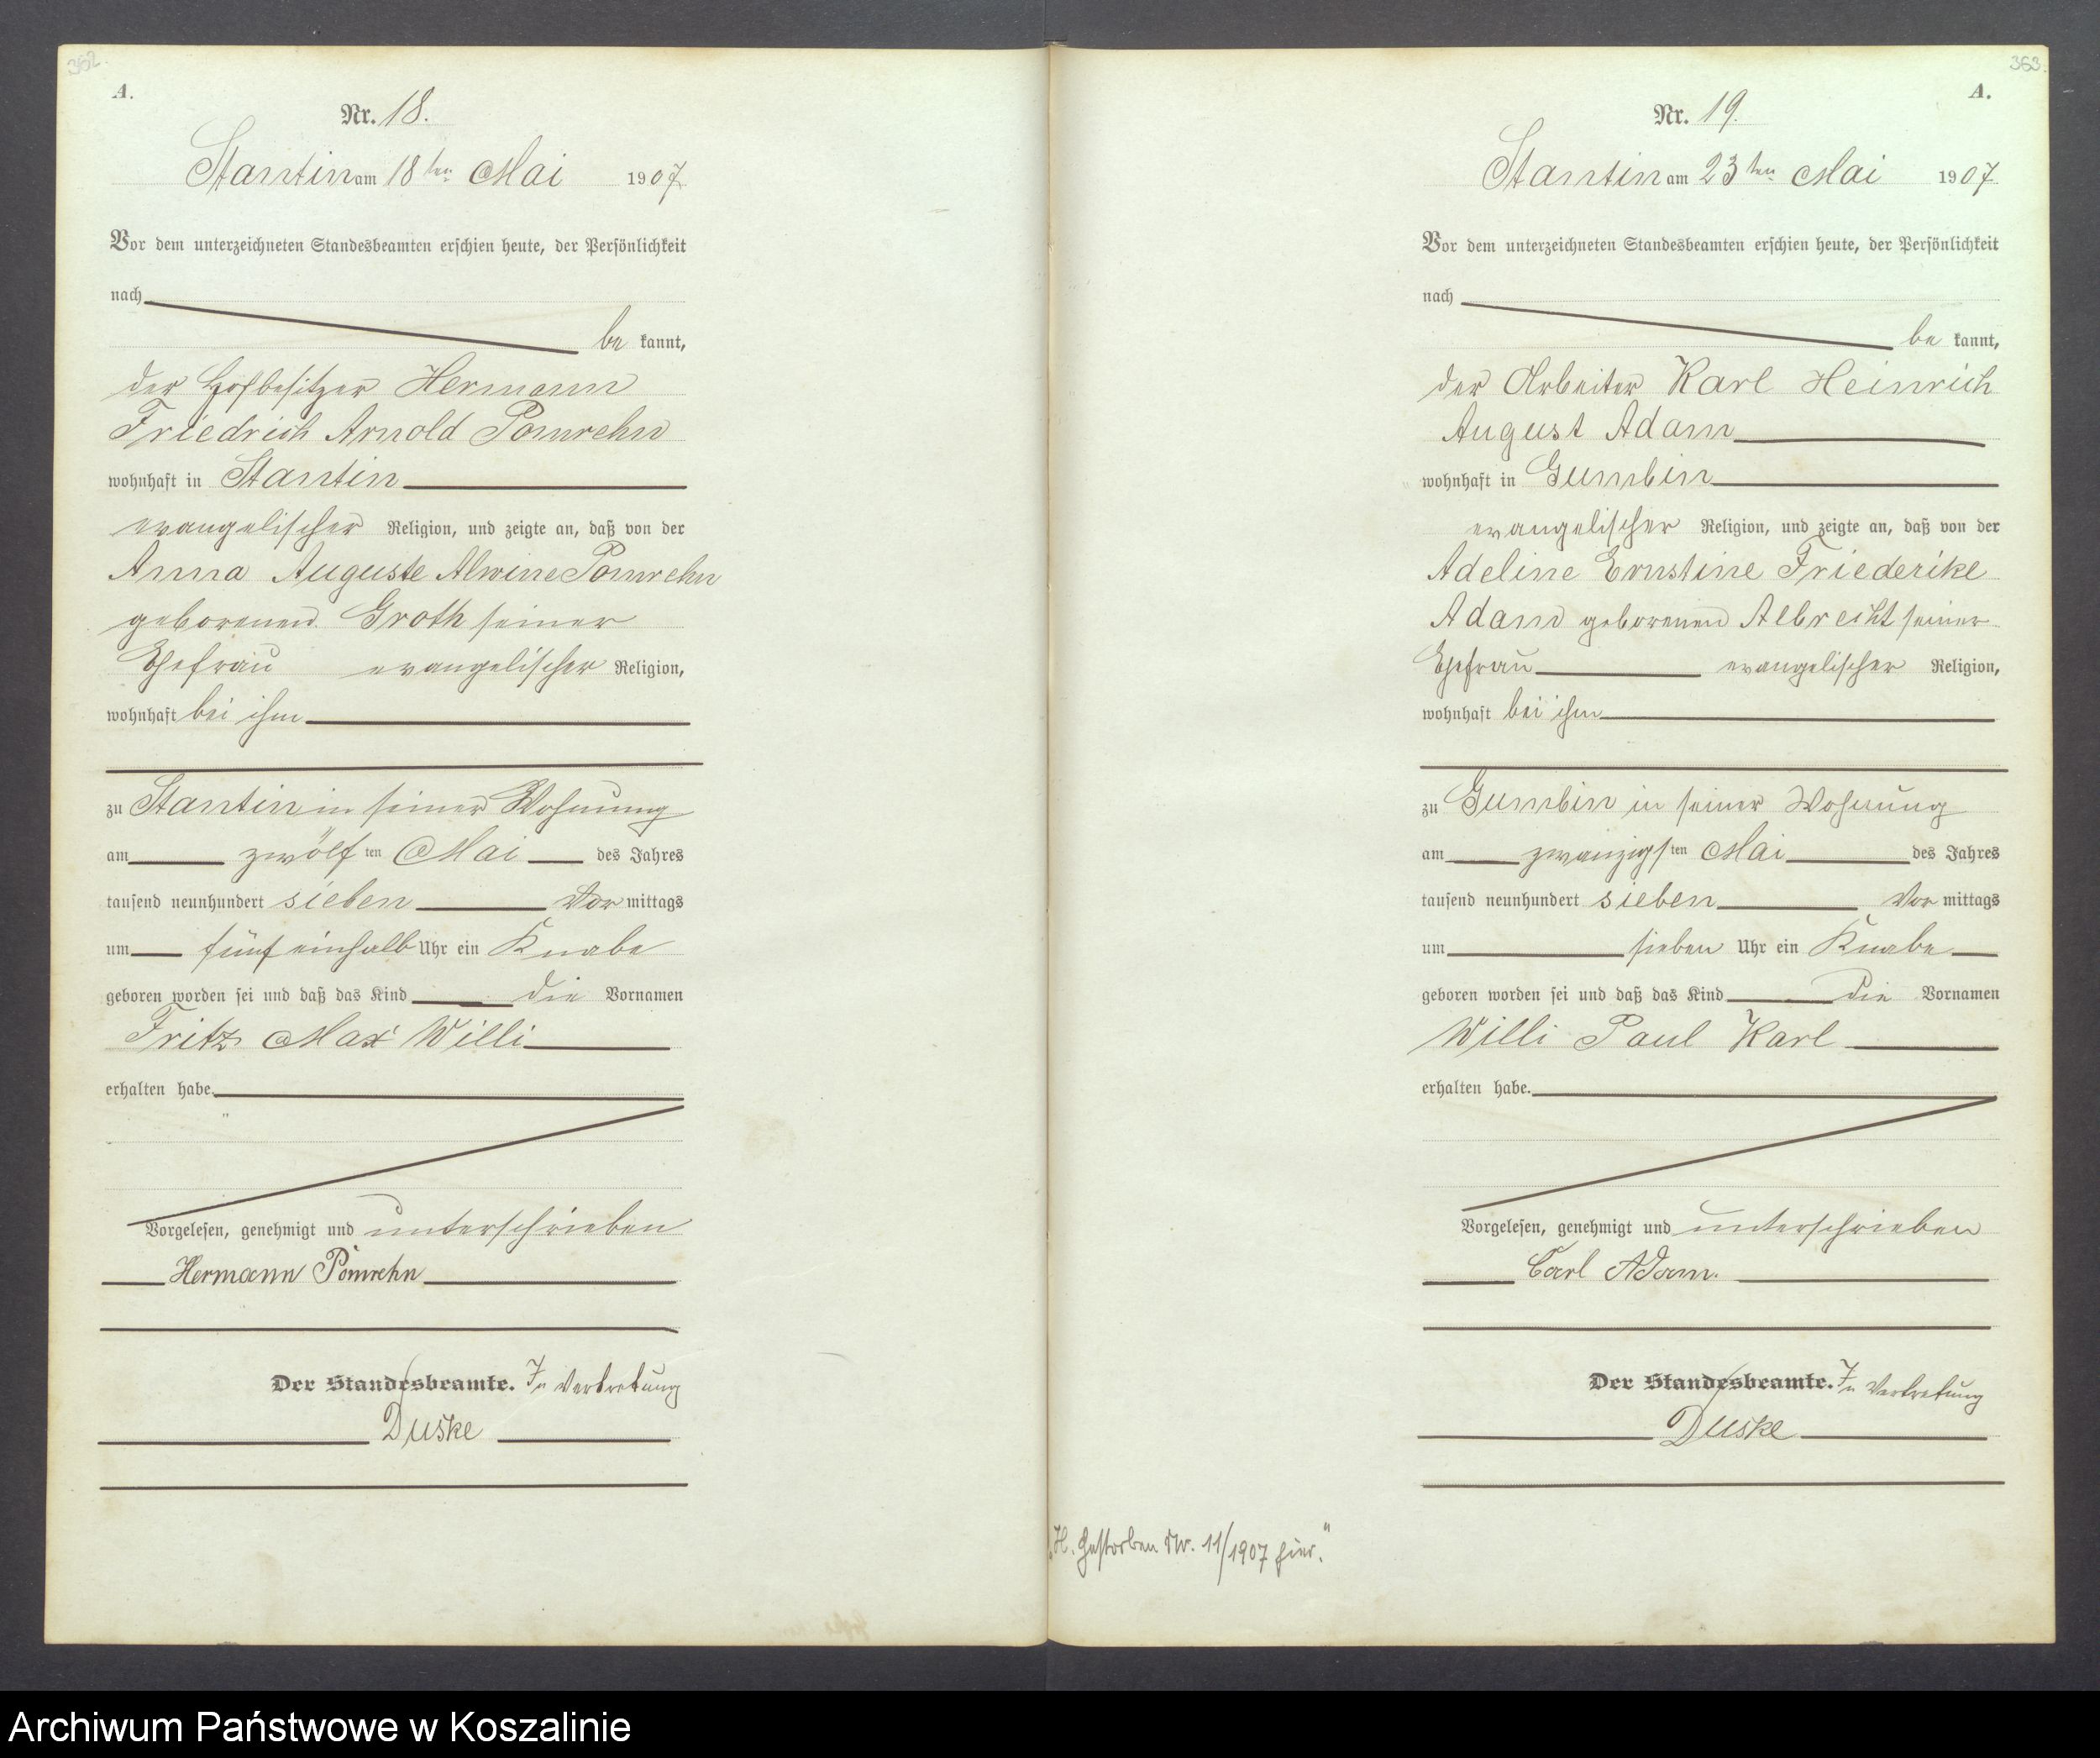 362.
A.
Nr. 18.
Stantin am 18ten Mai 1907
Vor dem unterzeichneten Standesbeamten erschien heute, der Persönlichkeit
nach
be kannt,
der Hofbesitzer Hermann
Friedrich Arnold Pomrehn
wohnhaft in Stantin
evangelischer Religion, und zeigte an, daß von der
Anna Auguste Alwine Pomrehn
geborenen Groth seiner
Ehefrau evangelischer Religion,
wohnhaft bei ihm
zu Stantin in seiner Wohnung
am zwölften Mai des Jahres
tausend neunhundert sieben Vor mittags
um fünf einhalb Uhr ein Knabe
geboren worden sei und daß das Kind die Vornamen
Fritz Max Willi
erhalten habe.
Vorgelesen, genehmigt und unterschrieben
Hermann Pomrehn
Der Standesbeamte. In Vertretung
Duske
363.
A.
Nr. 19.
Stantin am 23ten Mai 1907.
Vor dem unterzeichneten Standesbeamten erschien heute, der Persönlichkeit
nach
be kannt,
der Arbeiter Karl Heinrich
August Adam
wohnhaft in Gumbin
evangelischer Religion, und zeigte an, daß von der
Adeline Ernstine Friederike
Adam geborenen Albrecht seiner
Ehefrau evangelischer Religion,
wohnhaft bei ihm
zu Gumbin in seiner Wohnung
am zwanzigsten Mai des Jahres
tausend neunhundert sieben Vor mittags
um sieben Uhr ein Knabe
geboren worden sei und daß das Kind die Vornamen
Willi Paul Karl
erhalten habe.
Vorgelesen, genehmigt und unterschrieben
Carl Adam.
Der Standesbeamte. In Vertretung
Duske
„H. Gestorben Nr. 11/1907 hier."
Archiwum Państwowe w Koszalinie